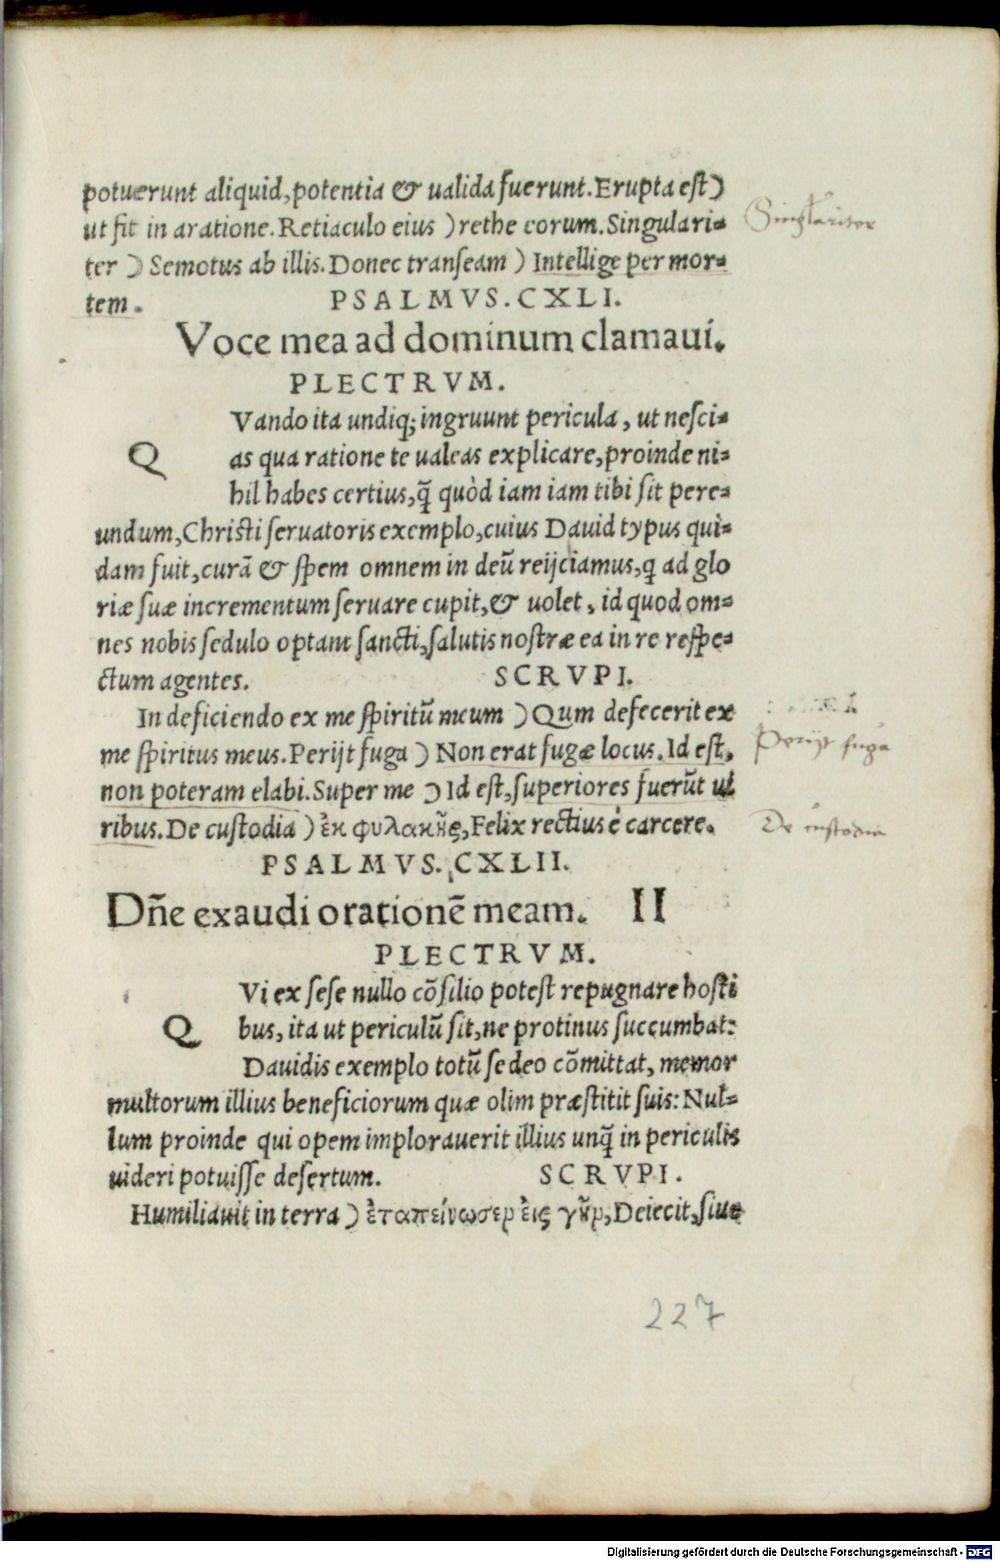 potuerunt aliquid, potentia & ualida fuerunt. Erupta est)
ut fit in aratione. Retiaculo eius ) rethe eorum. Singulari=
Singulariter
ter ) Semotus ab illis. Donec transeam ) Intellige per mor=
tem. PSALMVS. CXLI.
Voce mea ad dominum clamaui.
PLECTRVM.
QVando ita undiq; ingruunt pericula, ut nesci=
as qua ratione te ualeas explicare, proinde ni=
hil habes certius, q̃ quòd iam iam tibi sit pere=
undum, Christi seruatoris exemplo, cuius Dauid typus qui=
dam fuit, curã & spem omnem in deũ reijciamus, q ad glo
riæ suæ incrementum seruare cupit, & uolet, id quod om=
nes nobis sedulo optant sancti, salutis nostræ ea in re respe=
ctum agentes. SCRVPI.
In deficiendo ex me spiritũ meum ) Qum defecerit ex
me spiritus meus. Perijt fuga ) Non erat fugæ locus. Id est,
Perijt fuga
non poteram elabi. Super me ) Id est, superiores fuerũt ui
ribus. De custodia ) ἐκ φυλακῆς, Felix rectius è carcere.
De custodia
PSALMVS. CXLII.
Dñe exaudi orationẽ meam. II
PLECTRVM.
QVi ex sese nullo cõsilio potest repugnare hosti
bus, ita ut periculũ sit, ne protinus succumbat:
Dauidis exemplo totũ se deo cõmittat, memor
multorum illius beneficiorum quæ olim præstitit suis: Nul=
lum proinde qui opem implorauerit illius unq̃ in periculis
uideri potuisse desertum. SCRVPI.
Humiliauit in terra ) ἐταπείνωσεν εἰς γῆν, Deiecit, siue
227
Digitalisierung gefördert durch die Deutsche Forschungsgemeinschaft - DFG